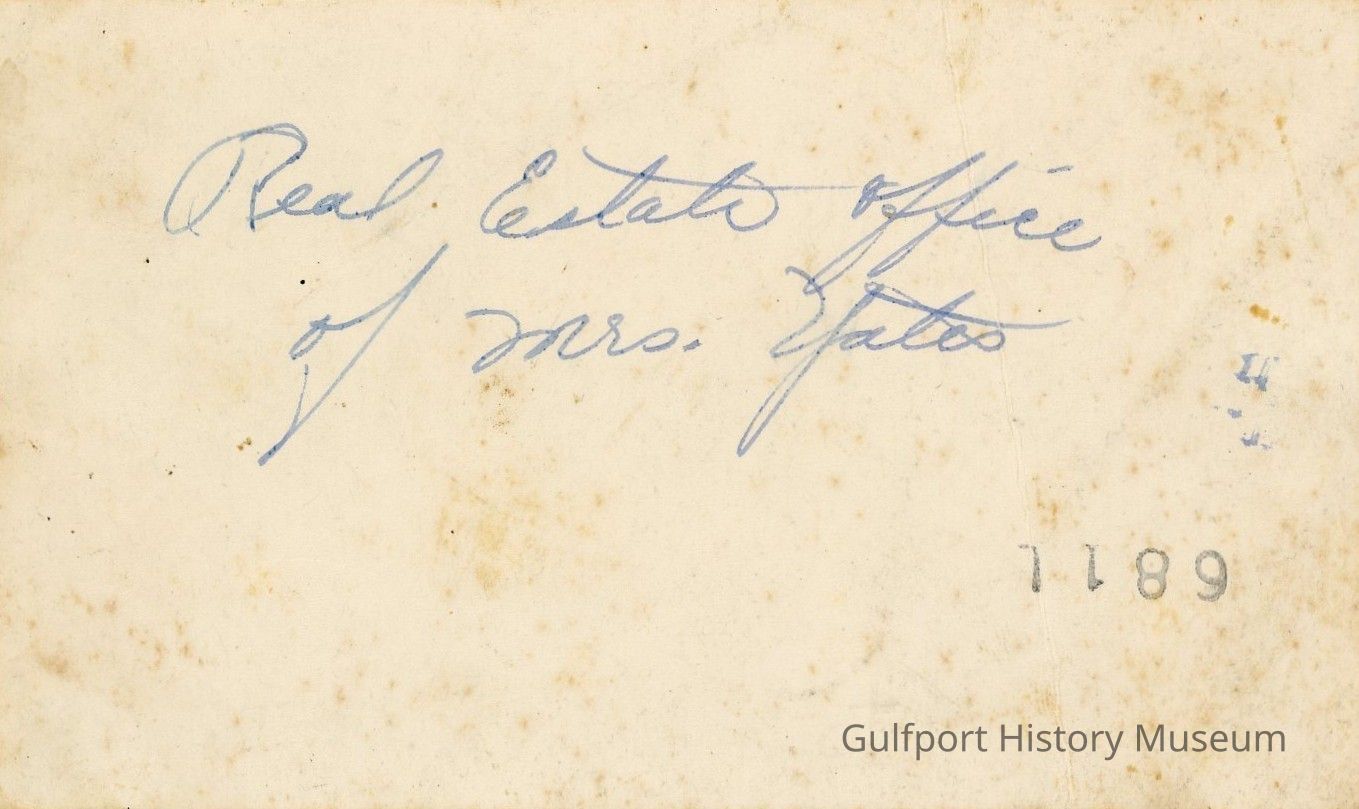 Real Estate office
of Mrs. Yates
6811
Gulfport History Museum